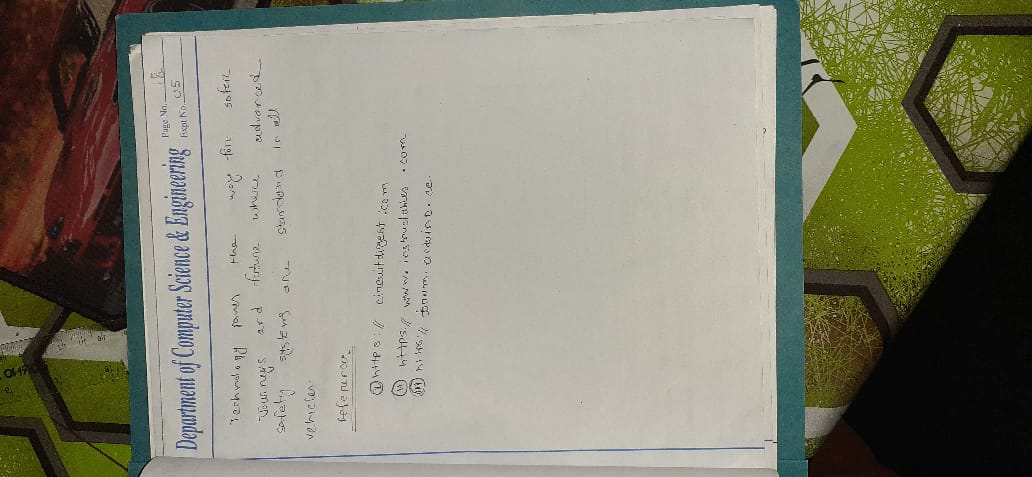 Department of Computer Science & Engineering
Page No. 18
Expt No. 05
Technology paves the way for safer
Journeys and future where advanced
safety systems are standard in all
vehicles.
references
(i) https:// circuitdigest.com
(ii) https:// www.instructables.com
(iii) https:// forum.arduino.cc.